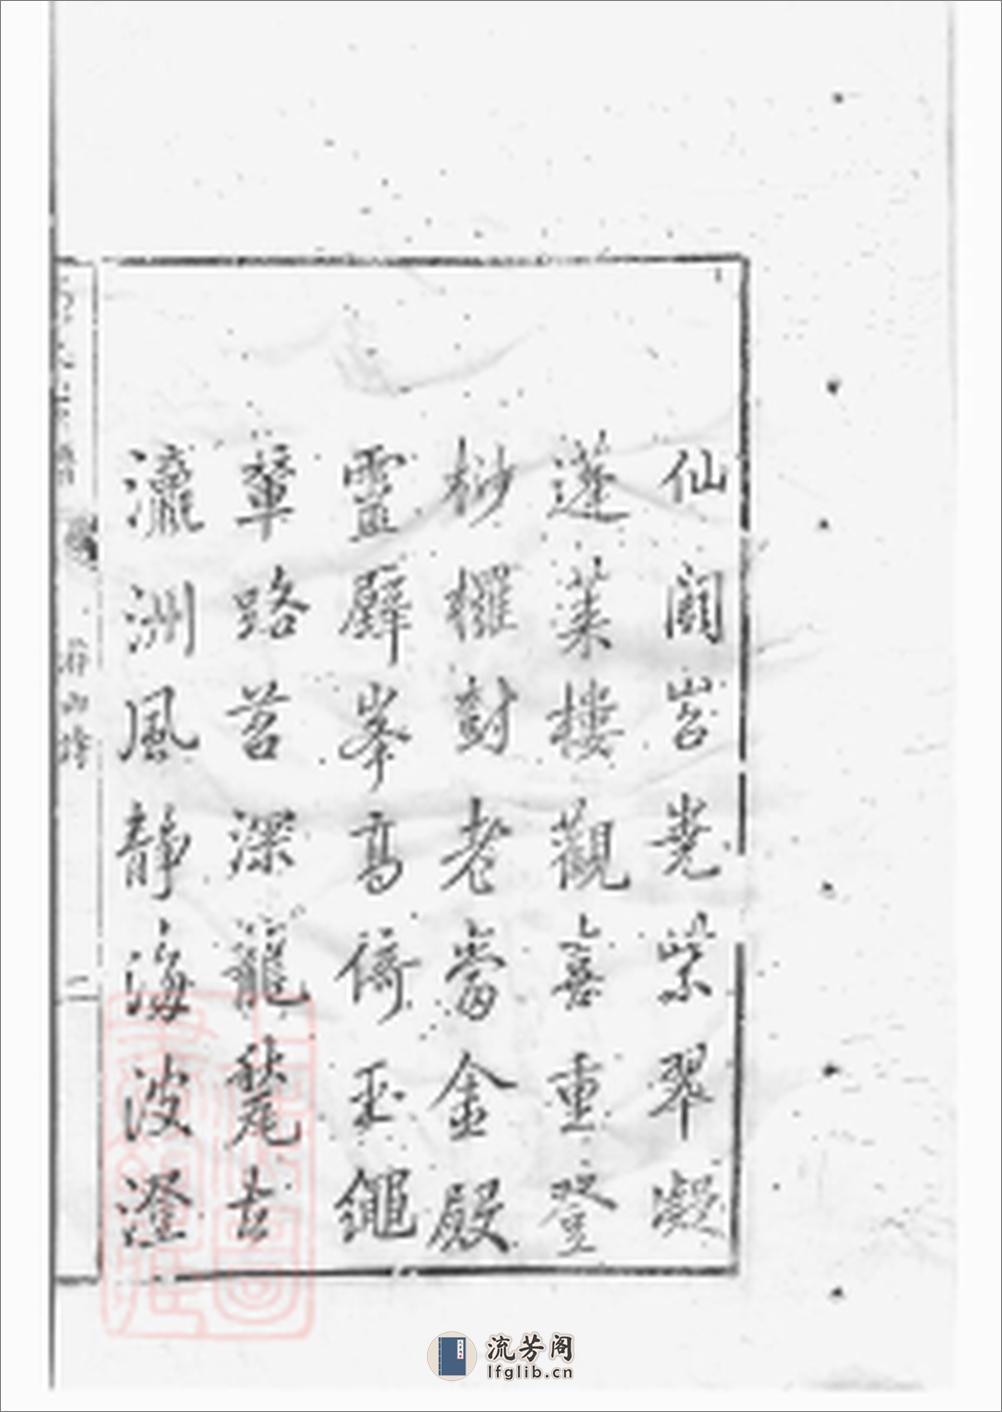 仙闕岧堯紫翠凝
蓬萊樓觀喜重登
桫欏樹老當金殿
靈壁峯高倚玉繩
輦路苔深龍氅古
瀛洲風靜海波澄
游西詩
二
流芳阁
lfglib.cn